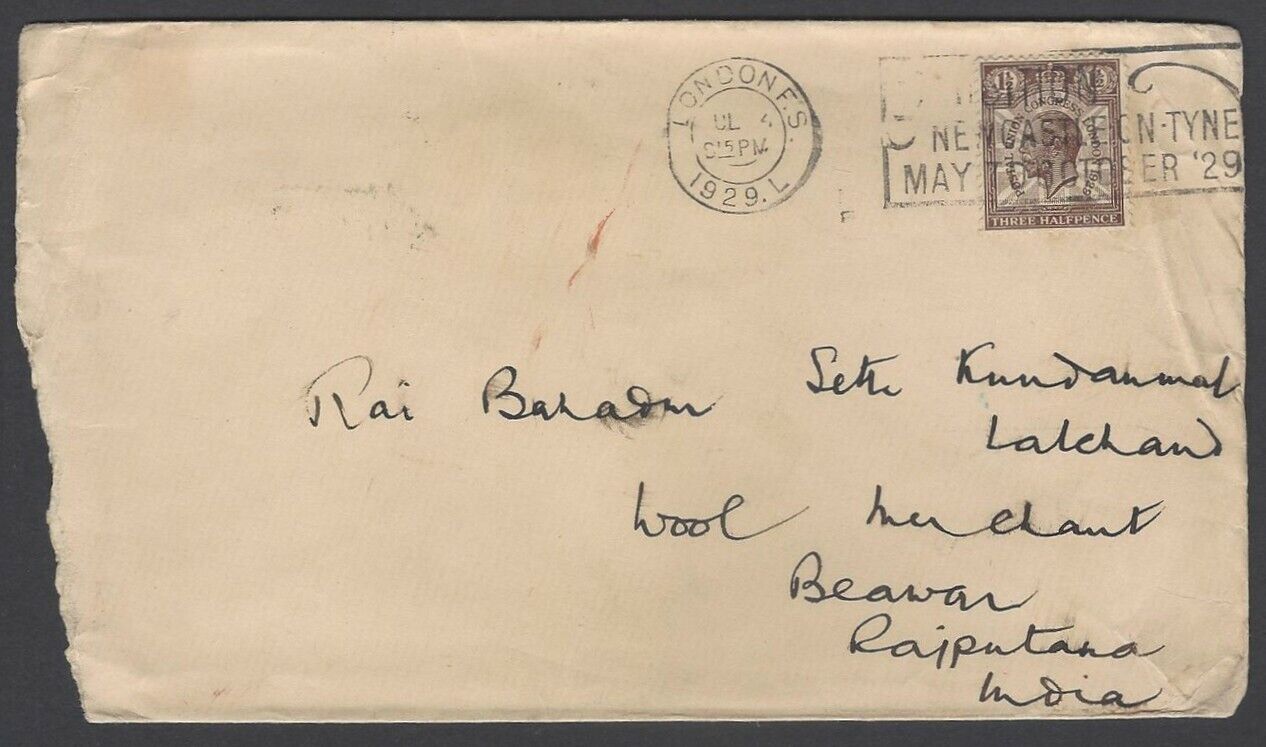 LONDON F.S.
UL 4
15 PM
1929. L
TION
NEWCASTLE-ON-TYNE
MAY TO OCTOBER '29
1½ 1½
POSTAL UNION CONGRESS LONDON 1929
THREE HALFPENCE
Rai Bahadur Seth Kundanmal
Lalchand
Wool Merchant
Beawar
Rajputana
India